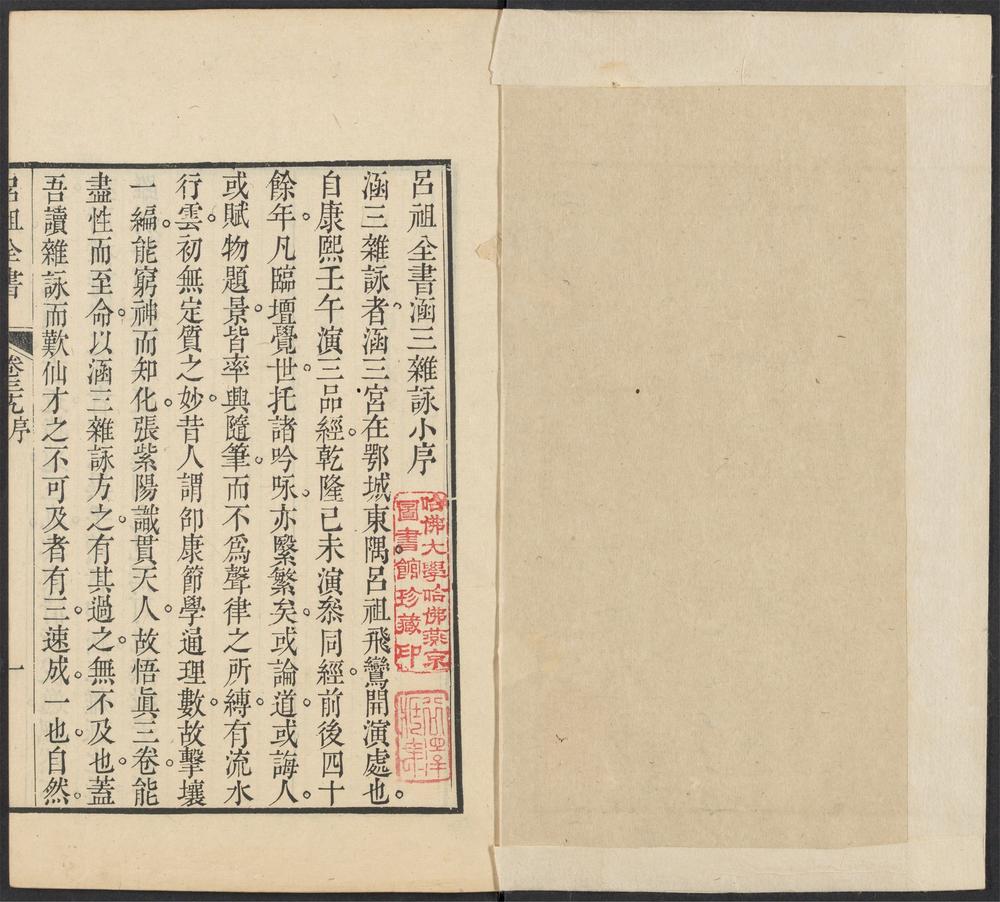 呂祖全書涵三雜詠小序
涵三雜詠者。涵三宮在鄂城東隅。呂祖飛鸞開演處也。
自康熙壬午演三品經。乾隆己未演叅同經。前後四十
餘年。凡臨壇覺世。托諸吟咏。亦緊繁矣。或論道。或誨人。
或賦物題景。皆率興隨筆。而不爲聲律之所縳。有流水
行雲。初無定質之妙。昔人謂卲康節學通理數。故擊壤
一編。能窮神而知化。張紫陽識貫天人。故悟眞三卷。能
盡性而至命。以涵三雜詠方之。有其過之。無不及也。蓋
吾讀雜詠而歎仙才之不可及者有三。速成。一也。自然。
呂祖全書
卷三九序
一
哈佛大學哈佛燕京
圖書館珍藏印